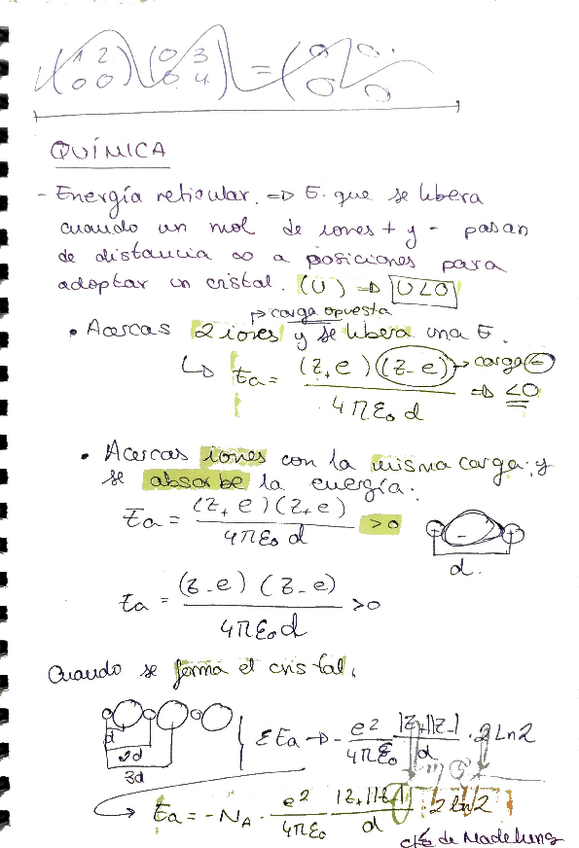 (1 2 0 0) (0 3 0 4) = (0 0 0 0)
QUÍMICA
- Energía reticular. => E. que se libera
cuando un mol de iones + y - pasan
de distancia ∞ a posiciones para
adoptar un cristal. (U) => U<0
↱ carga opuesta
• Acercas 2 iones y se libera una E.
↳ Ea = (Z+ e) (Z- e) / 4πε₀ d → carga ⊖ => <0
• Acercas iones con la misma carga y
se absorbe la energía.
Ea = (Z+ e) (Z+ e) / 4πε₀ d >0
d.
Ea = (Z- e) (Z- e) / 4πε₀ d >0
Cuando se forma el cristal.
d
2d
3d
ΣEa → - e² / 4πε₀ |Z+||Z-| / d · 2 Ln2
→ Ea = - NA · e² / 4πε₀ |Z+||Z-| / d 2 ln 2
cte de Madelung